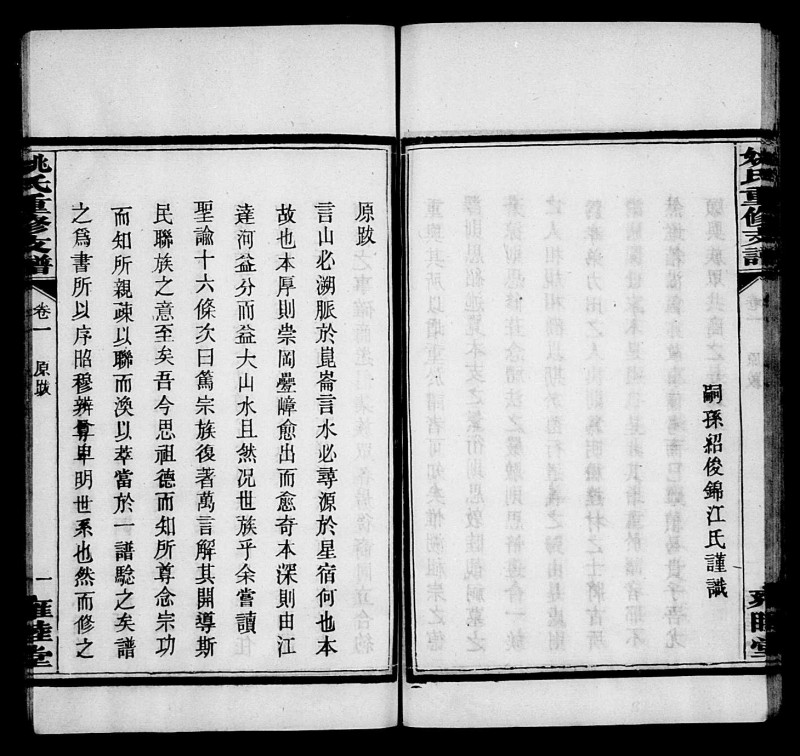 嗣孫紹俊錦江氏謹識
原跋
言山必溯脈於崑崙言水必尋源於星宿何也本
故也本厚則崇岡疊嶂愈出而愈奇本深則由江
達河益分而益大山水且然况世族乎余嘗讀
聖諭十六條次曰篤宗族復著萬言解其開導斯
民聯族之意至矣吾今思祖德而知所尊念宗功
而知所親疎以聯而渙以萃當於一譜騐之矣譜
之爲書所以序昭穆辨尊卑明世系也然而修之
姚氏重修支譜
卷一
原跋
一
雍睦堂
姚氏重修支譜
雍睦堂